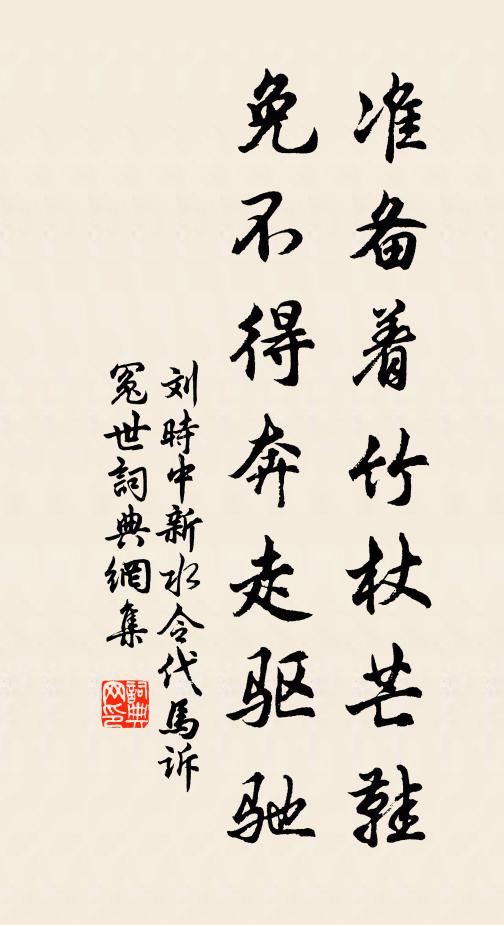 准备着竹杖芒鞋
免不得奔走驱驰
刘時中新水令代馬诉
冤世詞典網集
詞典
网印